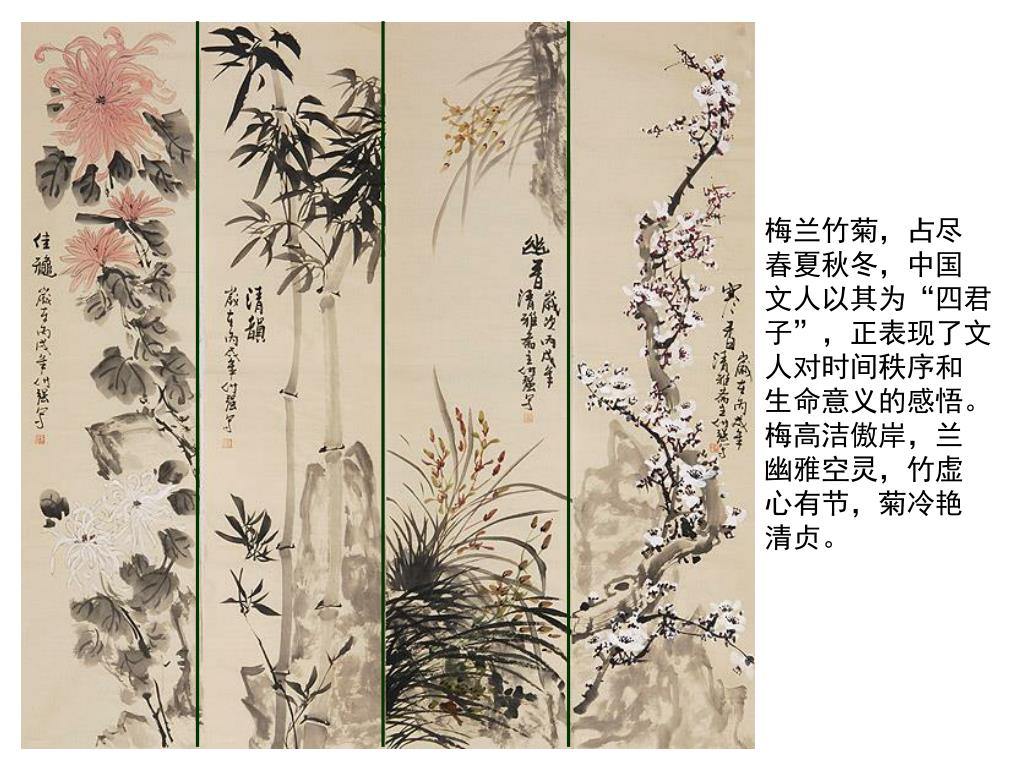 佳
岁在丙戌年
清韻
岁在丙戌年
幽香
岁次丙戌年
清雅斋主
寒香
岁在丙戌年
清雅斋主
梅兰竹菊，占尽
春夏秋冬，中国
文人以其为“四君
子”，正表现了文
人对时间秩序和
生命意义的感悟。
梅高洁傲岸，兰
幽雅空灵，竹虚
心有节，菊冷艳
清贞。